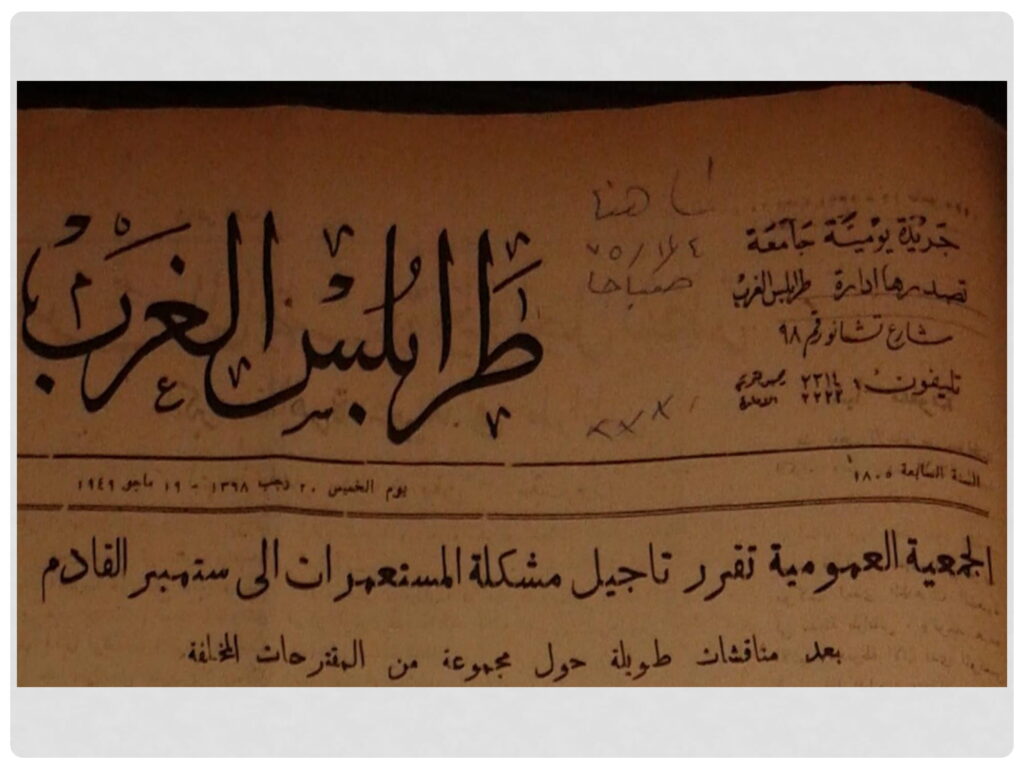 جريدة يومية جامعة
تصدرها ادارة طرابلس الغرب
شارع تشانو رقم ٩٨
تليفون: ٢٣١٤
٢٢٢٢ الادارة
طرابلس الغرب
هنا
صباحا
السنة السابعة ١٨٠٥
يوم الخميس ٢٠ رجب ١٣٦٨ - ١٩ مايو ١٩٤٩
الجمعية العمومية تقرر تاجيل مشكلة المستعمرات الى ستمبر القادم
بعد مناقشات طويلة حول مجموعة من المقترحات المختلفة